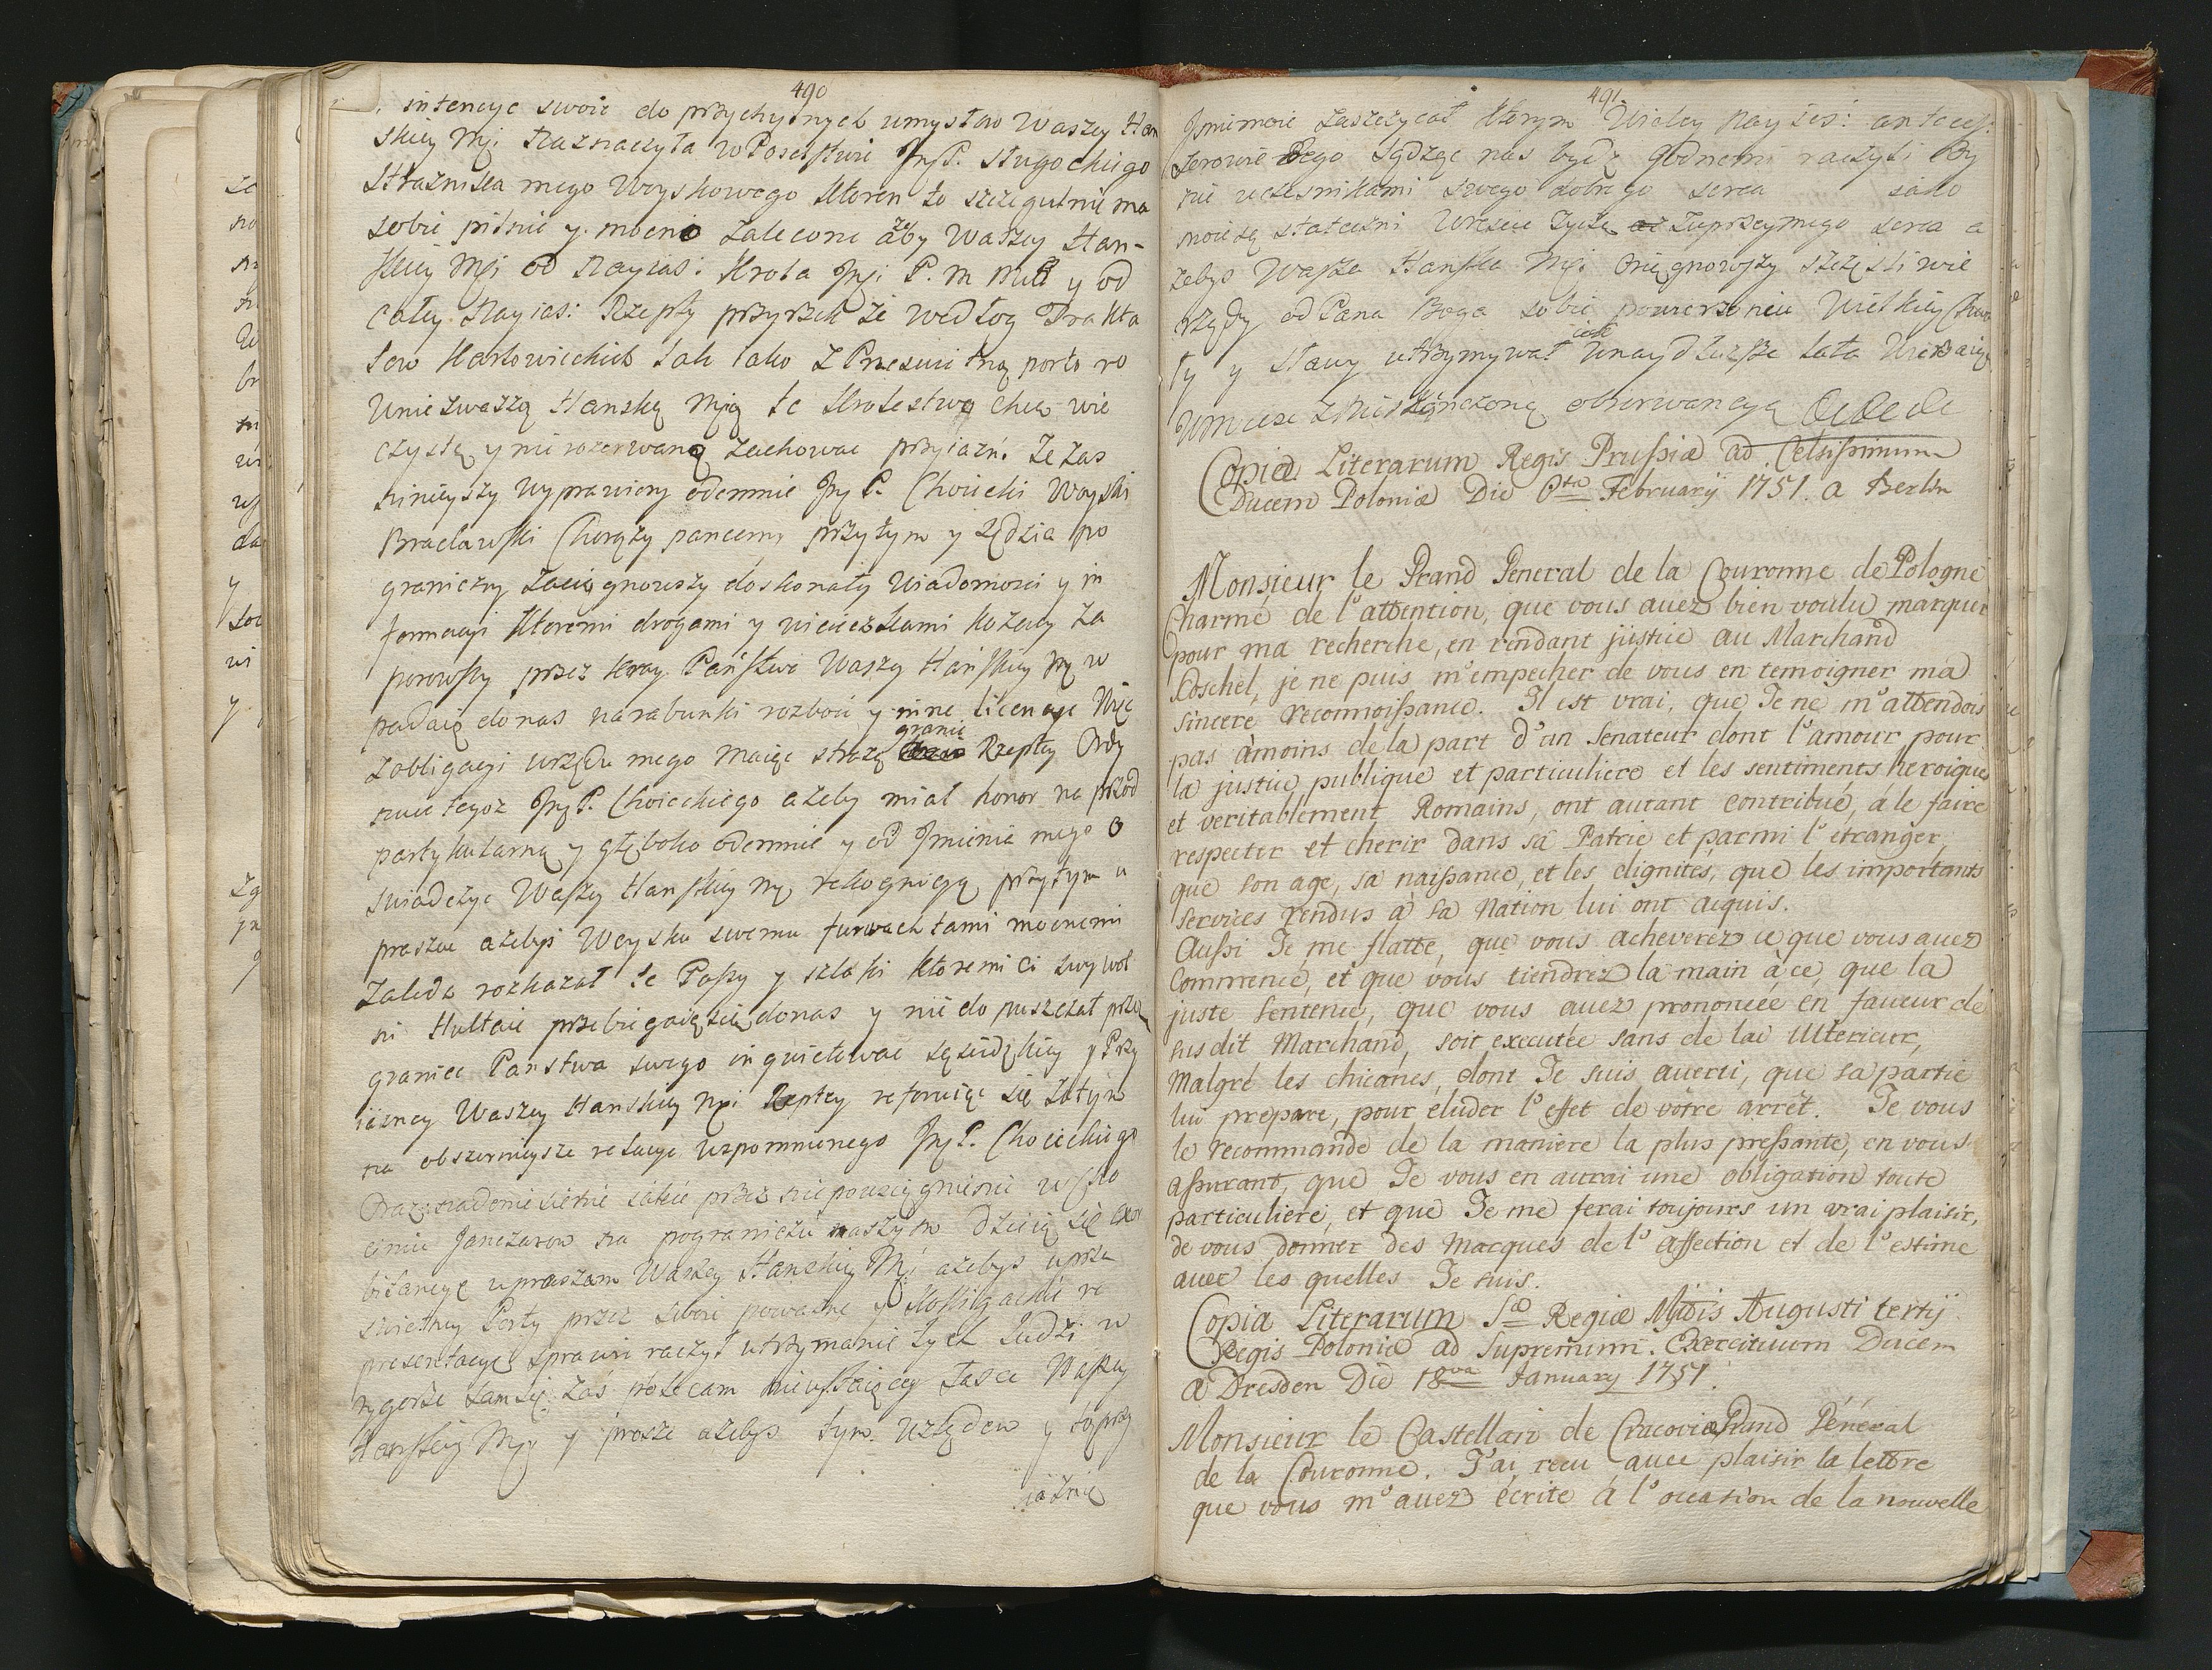 490
intencye swoie do przychylnych umysłow Waszey Han
skiey Mści naznaczyła w Poselstwie JmP.
Strażnika mego Woyskowego ktoren to szczegulnie ma
sobie pilnie y mocno zalecone ażeby Waszey Han-
skiey Mści od Nayias: Krola Jmści P. m Mił y od
całey Nayias: Rzeptey przyrzekł że według Trakta
tow Karłowieckich tak iako z Przeswietną porto ro
wnie zwaszą Hanską Mścią te Krolestwo chce wie
czystą y nierozerwaną zachować przyiaźń. Ze zas
ninieyszy wyprawiony odemnie Jmć P. Choiecki Woyski
Bracławski Chorąży pancerny przytym y Sędzia po
graniczny zaciągnowszy doskonały wiadomosci y in
formacyi ktoremi drogami y ucieczkami Kozacy za
porowscy przez kray Państwa Waszey Hańskiey Mści w
padaią donas narabunki rozboie y inne licencye Więc
z obligacyi urzędu mego maiąc strażę granic Rzeptey Ordy
nuie tegoż Jmć P. Choieckiego ażeby miał honor na przod
partykularną y głęboko odemnie y od Jmienia mego o
swiadczyć Waszey Hanskiey Mści rekognicyą przytym u
prasza ażebyś Woysku swemu furwachtami mocnemi
zaleda rozkazał te Passy y szlaki ktoremi ci swywol
ni Hultaie przebiegaią się donas y nie do puszczał przez
granice Panstwa swego inquietować sąsiedzkiey y Przy
iazney Waszey Hanskiey Mści Rzeptey referuiąc się zatym
na obszernieysze relacye wspomnionego Jmć P. Choieckiego
Oraz
Janczarow na pograniczu naszym dzieią się exor
bitancye upraszam Waszey Hanskiey Mści ażebyś uprze
swietney Porty przez swoie powazne y skolligackie re
prezentacye sprawić raczył utrzymanie tych ludzi w
rygorze samsię zaś polecam nieustaiącey łasce Waszey
Hanskiey Mści y prosze ażebys tym względem y tąprzy
iaźnią

491.
Jmiemoie zaszczycał ktorym Wielcy Nayias: anteces:
serowie Jego sądząc nas bydź godnemi raczyli By
nie uczesnikami swego dobrego serca iako
moie są stateczni Wrescie życzę z uprzeymego serca a
żebys Wasza Hanska Mść osięgnowszy szczęsliwie
rządy od Pana Boga sobie powierzone w Wielkiey Chwa
ły y sławy utrzymywał ięte w naydłuższe lata
Umiese znieskończoną obserwancyą &c &c &c
Copia Literarum Regis Prussiæ ad Celsissimum
Ducem Poloniæ Die 6ta Februarij 1751. a Berlin
Monsieur le Grand General de la Couronne de Pologne
Charmé de l'attention, que vous avez bien voulu marquer
pour ma recherche, en rendant justice au Marchand
Doschel, je ne puis m'empecher de vous en temoigner ma
sincere reconnoissance. Il est vrai, que Je ne m'attendois
pas àmoins de la part d'un Senateur dont l'amour pour
la justice publique et particuliere et les sentiments heroiques
et veritablement Romains, ont autant contribué, á le faire
respecter et cherir dans sa Patrie et parmi l'etranger,
que son age, sa naissance, et les dignités, que les importants
services rendus à sa Nation lui ont acquis.
Aussi Je me flatte, que vous acheverez ce que vous avez
Commencé, et que vous tiendrez la main à ce, que la
juste Sentence, que vous avez prononcée en faveur de
susdit Marchand, soit executée sans de lai Ulterieur,
Malgré les chicanes, dont Je suis averti, que sa partie
lui prepare, pour eluder l'effet de vôtre arrêt. Je vous
le recommande de la maniere la plus pressante, en vous
assurant, que Je vous en aurai une obligation toute
particuliere, et que Je me ferai toujours un vrai plaisir,
de vous donner des Marques de l'affection et de l'estime
avec les quelles Je suis.
Copia Literarum Sæ Regiæ Mtis Augusti tertij
Regis Poloniæ ad Supremum. Exercituum Ducem
a Dresden Die 18va January 1751.
Monsieur le Castellan de Cracovie Grand Général
de la Couronne. J'ai recu avec plaisir la lettre
que vous m'avez écrite á l'occasion de la nouvelle